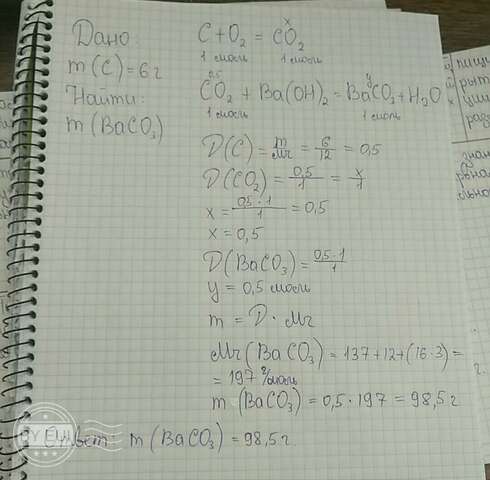 Дано:
m(C)=6г
Найти:
m(BaCO₃)
x
C + O₂ = CO₂
1 моль 1 моль
0,5 y
CO₂ + Ba(OH)₂ = BaCO₃ + H₂O
1 моль 1 моль
D(C) = m/Mr = 6/12 = 0,5
D(CO₂) = 0,5/1 = x/1
x = 0,5 · 1/1 = 0,5
x = 0,5
D(BaCO₃) = 0,5 · 1/1
y = 0,5 моль
m = D · Mr
Mr(BaCO₃) = 137+12+(16·3) =
= 197 г/моль
m(BaCO₃) = 0,5 · 197 = 98,5 г
Ответ: m(BaCO₃) = 98,5 г.
пищ
рыт
ции
раз
знан